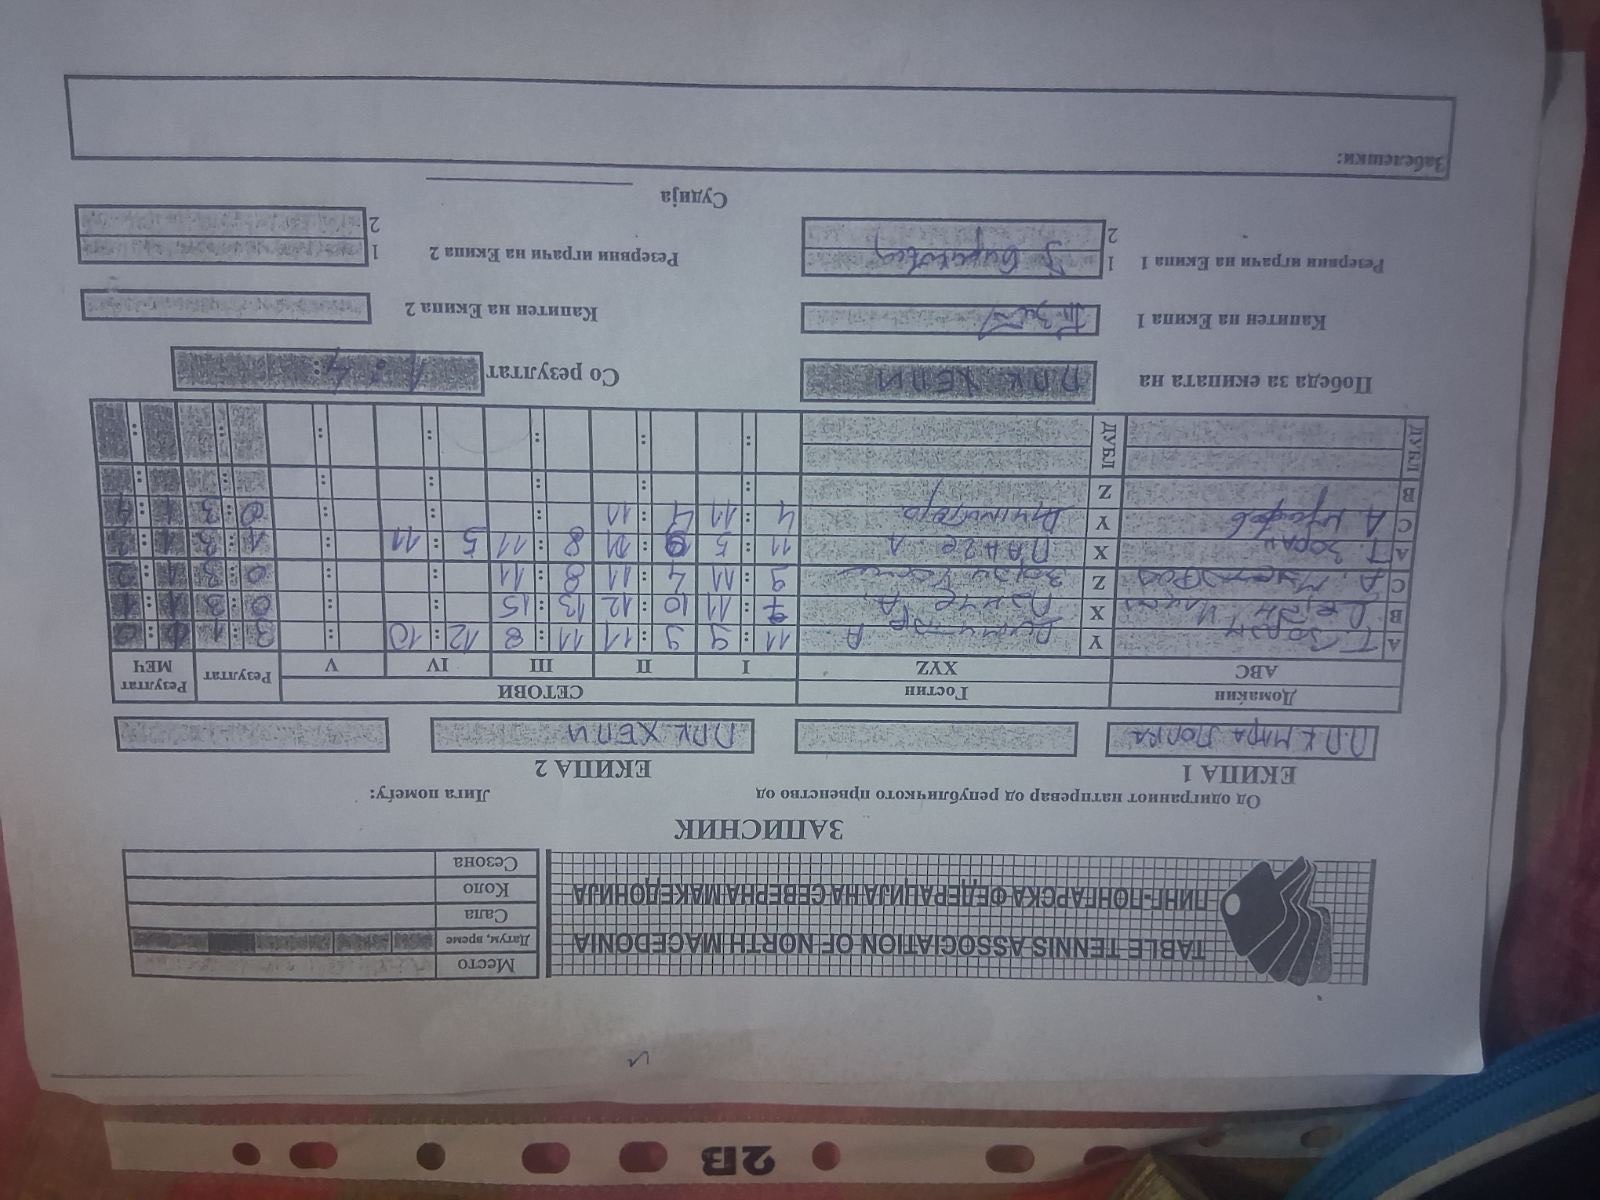 и
TABLE TENNIS ASSOCIATION OF NORTH MACEDONIA
ПИНГ-ПОНГАРСКА ФЕДЕРАЦИЈА НА СЕВЕРНА МАКЕДОНИЈА
Место
Датум, време
Сала
Коло
Сезона
ЗАПИСНИК
Од одиграниот натпревар од републичкото првенство од Лига помеѓу:
ЕКИПА 1 ЕКИПА 2
П.П.К МРА ППК ХЕПИ
Домаќин Гостин СЕТОВИ Резултат Резултат МЕЧ
ABC XYZ I II III IV V
A Т Зоран Y Димитар А 11 : 9 9 : 11 11 : 8 12 : 10 : 3 : 1 1 : 0
B X А 7 : 11 10 : 12 13 : 15 : : 0 : 3 1 : 1
C А. Z 9 : 11 4 : 11 8 : 11 : : 0 : 3 1 : 2
A Т Зоран X Панче А 11 : 5 9 : 11 8 : 11 5 : 11 : 1 : 3 1 : 3
C А Y Димитар 4 : 11 4 : 11 : : : 0 : 3 1 : 4
B / Z / : : : : : : :
ДУБЛ ДУБЛ : : : : : : :
Победа за екипата на ППК ХЕПИ Со резултат 1 : 4
Капитен на Екипа 1 Капитен на Екипа 2
Резервни играчи на Екипа 1 1 Резервни играчи на Екипа 2 1
2 2
Судија
Забелешки:
2B